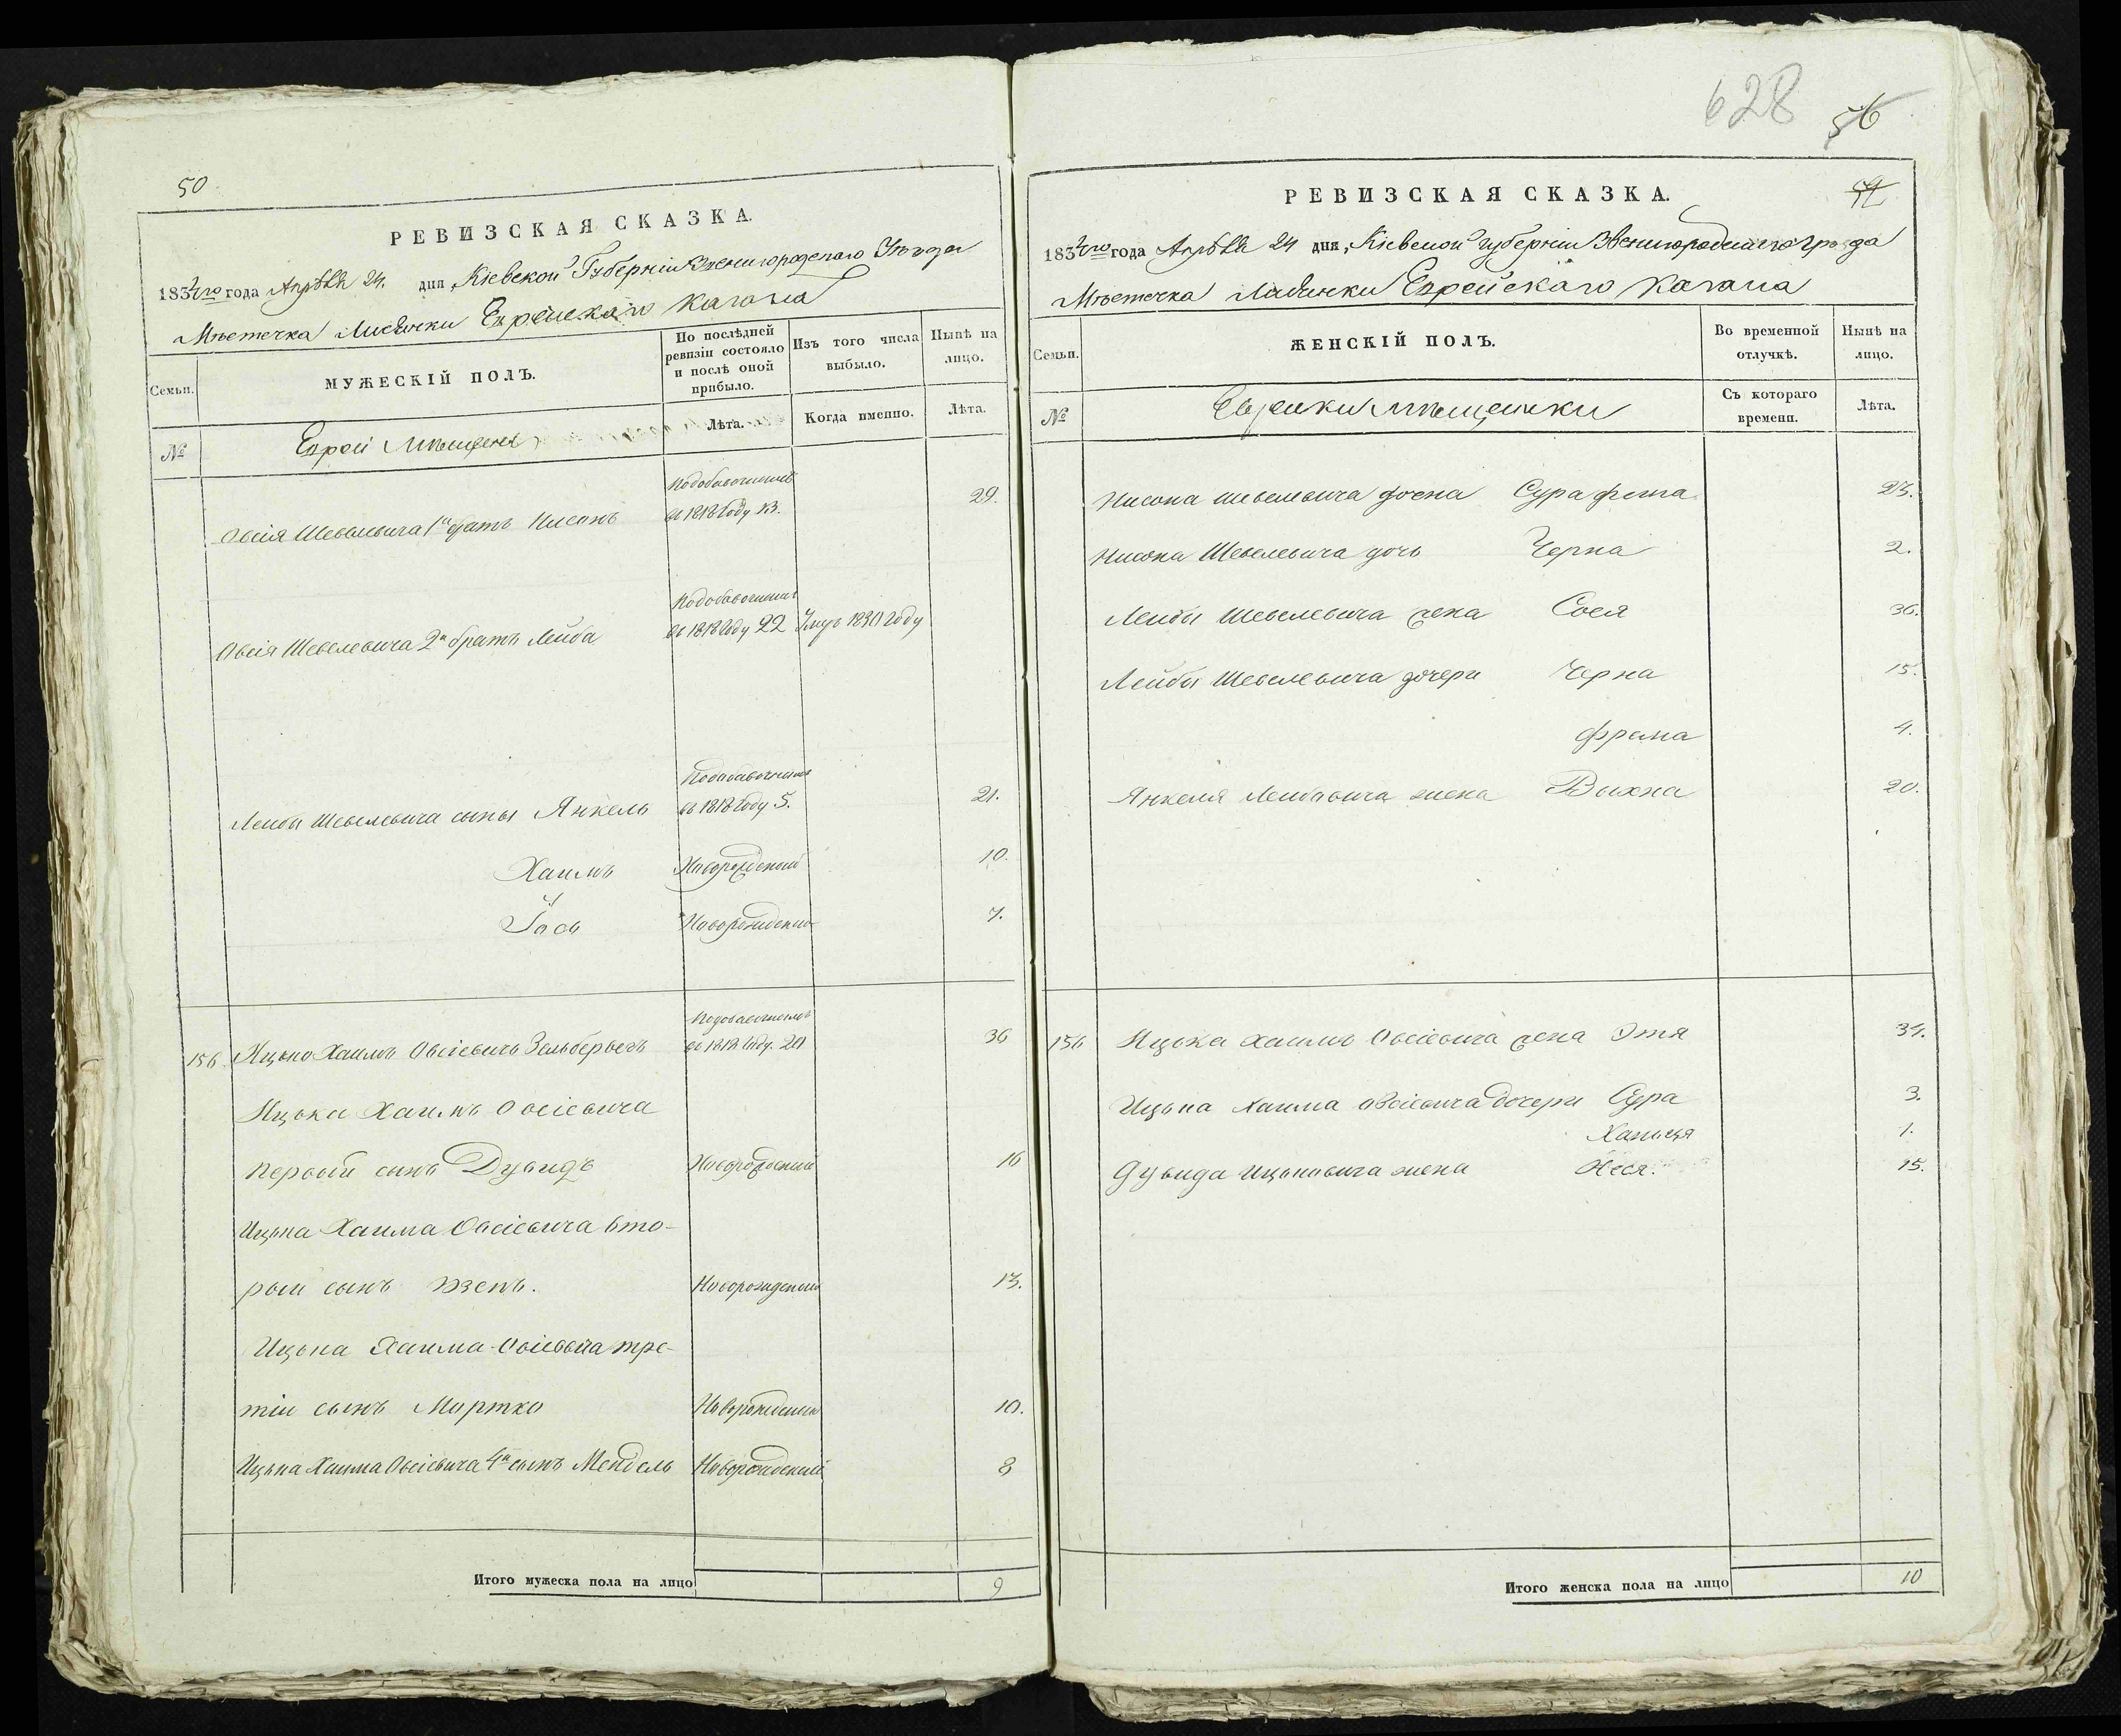 50
РЕВИЗСКАЯ СКАЗКА.
1834го года Апрѣля 24. дня, Кіевской Губерніи Звенигородскаго Уѣзда
Мѣстечка Лисянки Еврейскаго Кагала
Семьи.
МУЖЕСКІЙ ПОЛЪ.
По послѣдней ревизіи состояло и послѣ оной прибыло.
Изъ того числа выбыло.
Нынѣ на лицо.
№
Евреи Мѣщане
Лѣта.
Когда именно.
Лѣта.
Подобавочнымъ
Овсія Шевелевича 1й братъ Нисонъ въ 1818 Году 13. 29.
Подобавочнымъ
Овсія Шевелевича 2й братъ Лейба въ 1818 Году 22 Умръ 1830 Году
Подобавочнымъ
Лейбы Шевелевича сыны Янкель въ 1818 Году 5. 21.
Хаимъ Новорожденный 10.
Іось Новорожденный 7.
Подобавочнымъ
156 Ицько Хаимъ Овсіевичъ Зельбербегъ въ 1818 Году. 20 36
Ицька Хаимъ Овсіевича
первый сынъ Дувидъ Новорожденный 16
Ицька Хаима Овсіевича вто-
рый сынъ Новорожденный 13.
Ицька Хаима Овсіевича тре-
тій сынъ Мортко Новорожденный 10.
Ицька Хаима Овсіевича 4й сынъ Мендель Новорожденный 8
Итого мужеска пола на лицо 9
628 56
РЕВИЗСКАЯ СКАЗКА.
1834го года Апрѣля 24 дня, Кіевской губерніи Звенигородскаго уѣзда
Мѣстечка Лисянки Еврейскаго Кагала
Семьи.
ЖЕНСКІЙ ПОЛЪ.
Во временной отлучкѣ.
Нынѣ на лицо.
№
Еврейки мѣщанки
Съ котораго времени.
Лѣта.
Нисона Шевелевича жена Сура фрима 23.
Нисона Шевелевича дочь Черна 2.
Лейбы Шевелевича жена Сося 36.
Лейбы Шевелевича дочери Черна 15.
фрима 4.
Янкеля Лейбовича жена Выхна 20.
156 Ицька Хаима Овсіевича жена Этя 34.
Ицька Хаима Овсіевича дочери Сура 3.
Ханьця 1.
Дувида Ицьковича жена Неся. 15.
Итого женска пола на лицо 10